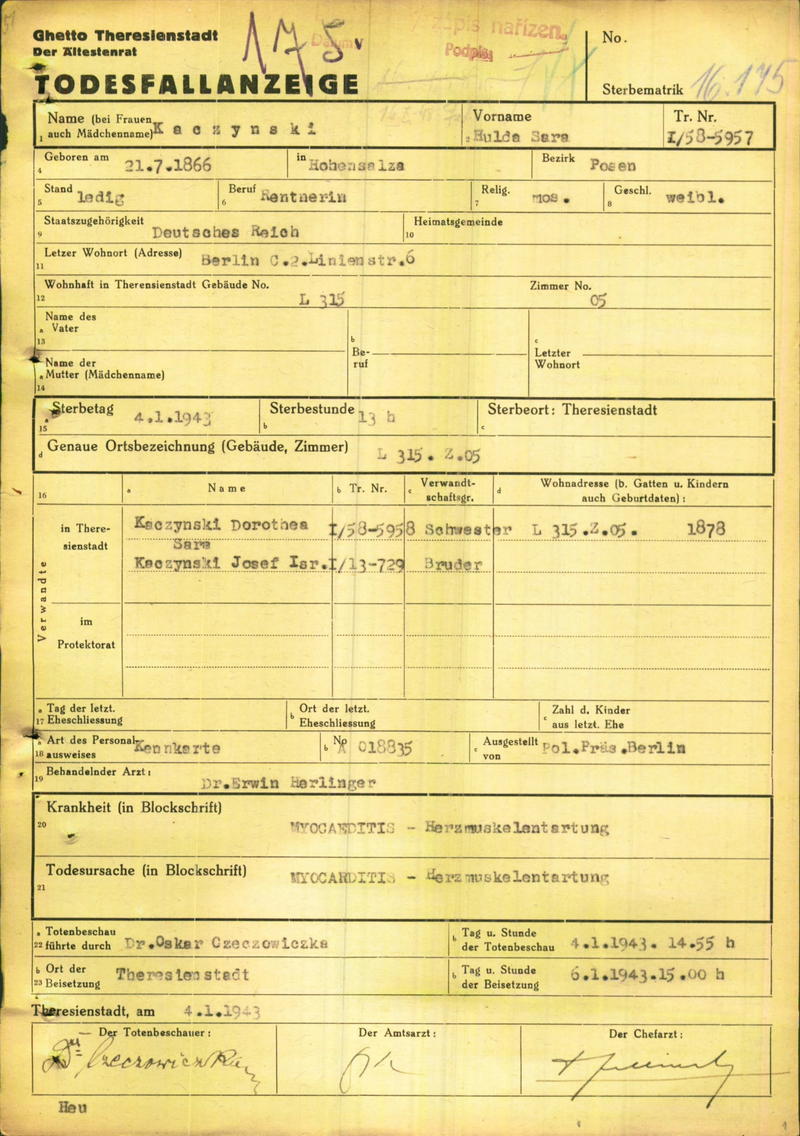 Ghetto Theresienstadt
Der Ältestenrat
TODESFALLANZEIGE
175
zápis nařízen.
Datum
Podpis
No.
Sterbematrik 16.175
Name (bei Frauen auch Mädchenname) Kaczynski
1
Vorname
2 Hulda Sara
Tr. Nr.
I/58-5957
Geboren am 21.7.1866
4
in Hohensalza
Bezirk Posen
Stand ledig
5
Beruf Rentnerin
6
Relig. mos.
7
Geschl. weibl.
8
Staatszugehörigkeit
9 Deutsches Reich
Heimatsgemeinde
10
Letzer Wohnort (Adresse) Berlin C.2.Linienstr.6
11
Wohnhaft in Theresienstadt Gebäude No.
12 L 315
Zimmer No.
05
Name des
a Vater
13
Name der
a Mutter (Mädchenname)
14
b
Be-
ruf
c
Letzter
Wohnort
Sterbetag 4.1.1943
a
15
Sterbestunde 13 h
b
Sterbeort: Theresienstadt
c
d Genaue Ortsbezeichnung (Gebäude, Zimmer) L 315. Z.05
16
a Name
b Tr. Nr.
c Verwandt-
schaftsgr.
d Wohnadresse (b. Gatten u. Kindern
auch Geburtdaten):
Verwandte
in There-
sienstadt
Kaczynski Dorothea I/58-5958 Schwester L 315.Z.05. 1878
Sara
Kaczynski Josef Isr. I/13-729 Bruder
im
Protektorat
a Tag der letzt.
17 Eheschliessung
b Ort der letzt.
Eheschliessung
c Zahl d. Kinder
aus letzt. Ehe
a Art des Personal-
18 ausweises Kennkarte
b No A 018835
c Ausgestellt
von Pol.Präs.Berlin
Behandelnder Arzt:
19 Dr.Erwin Herlinger
Krankheit (in Blockschrift)
20 MYOCARDITIS - Herzmuskelentartung
Todesursache (in Blockschrift)
21 MYOCARDITIS - Herzmuskelentartung
a Totenbeschau
22 führte durch Dr.Oskar Czeczowiczka
b Tag u. Stunde
der Totenbeschau 4.1.1943. 14.55 h
b Ort der
23 Beisetzung Theresienstadt
b Tag u. Stunde
der Beisetzung 6.1.1943.15.00 h
Theresienstadt, am 4.1.1943
Der Totenbeschauer:
Der Amtsarzt:
Der Chefarzt:
Heu